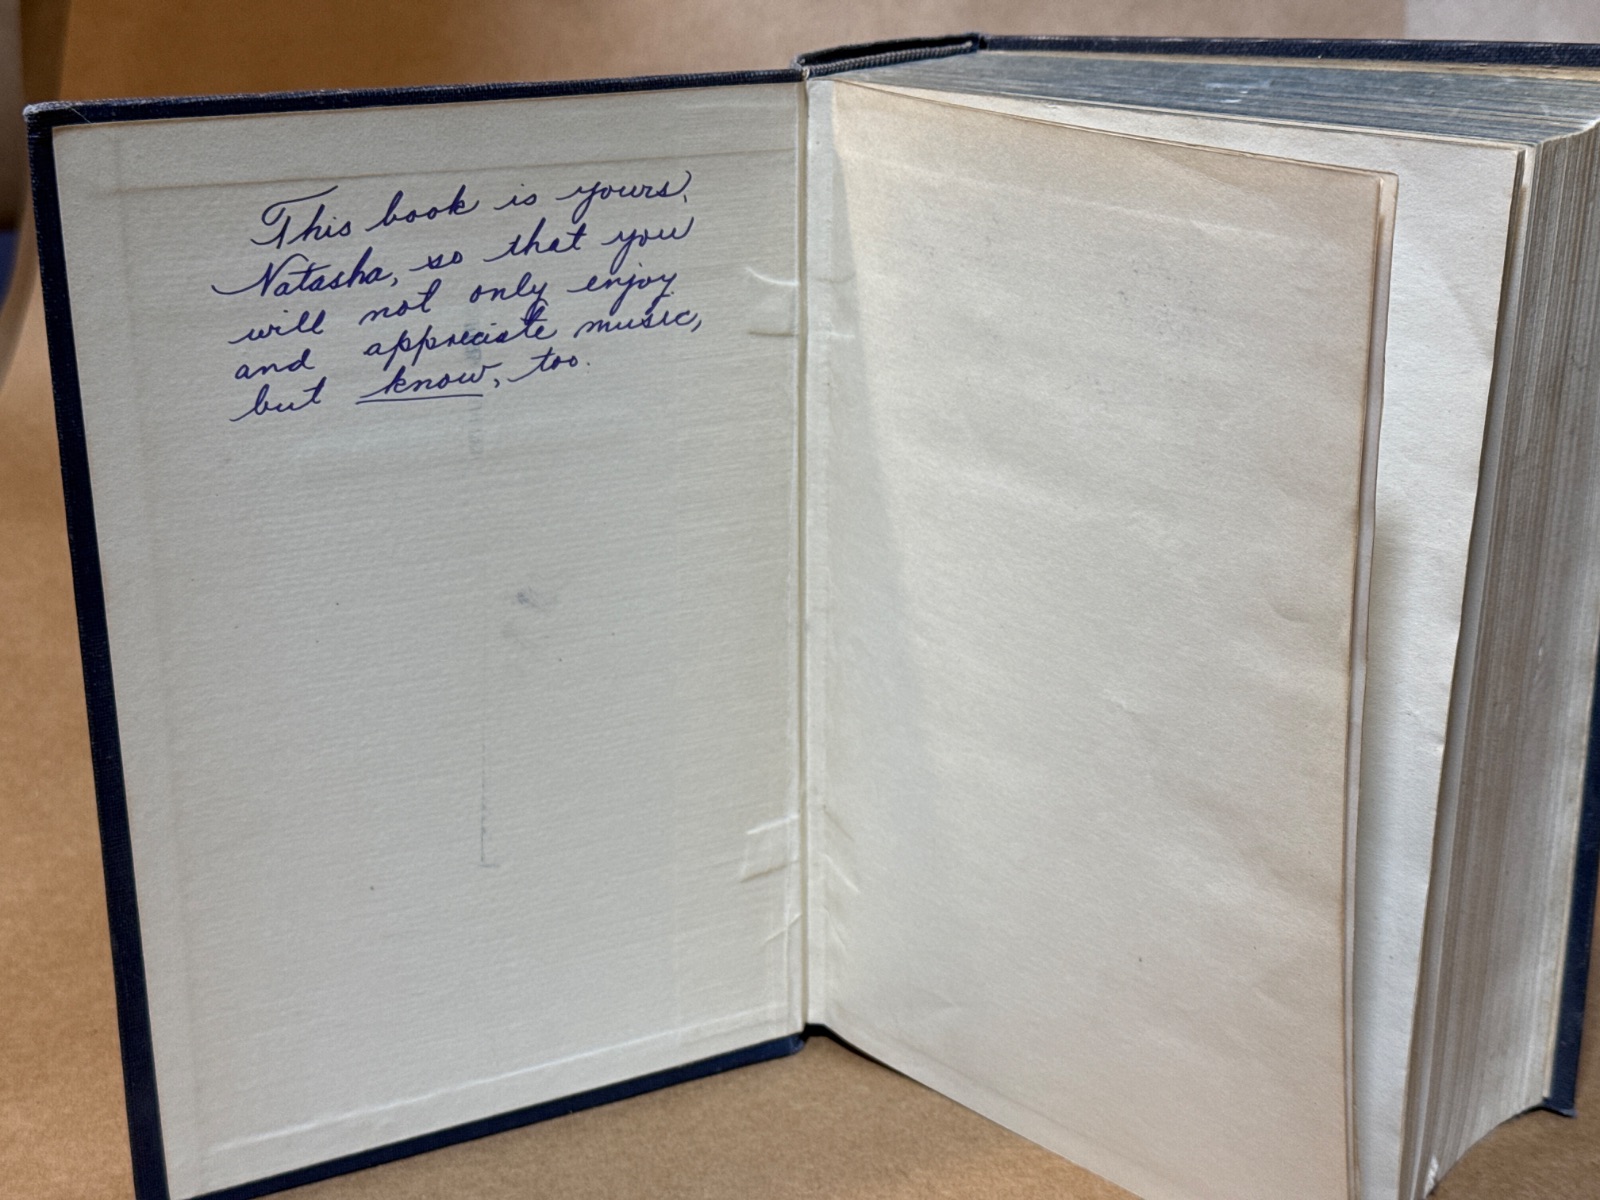 This book is yours,
Natasha, so that you
will not only enjoy
and appreciate music,
but know, too.